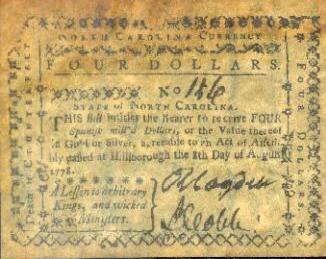 NORTH CAROLINA CURRENCY
FOUR DOLLARS.
No 186
STATE of NORTH CAROLINA.
THIS Bill intitles the Bearer to receive FOUR
Spanish mill'd Dollars, or the Value thereof
in Gold or Silver, agreeable to an Act of Assem-
bly passed at Hillsborough the 8th Day of August
1778.
A Lesson to arbitrary
Kings, and wicked
Ministers.
Four Dollars.